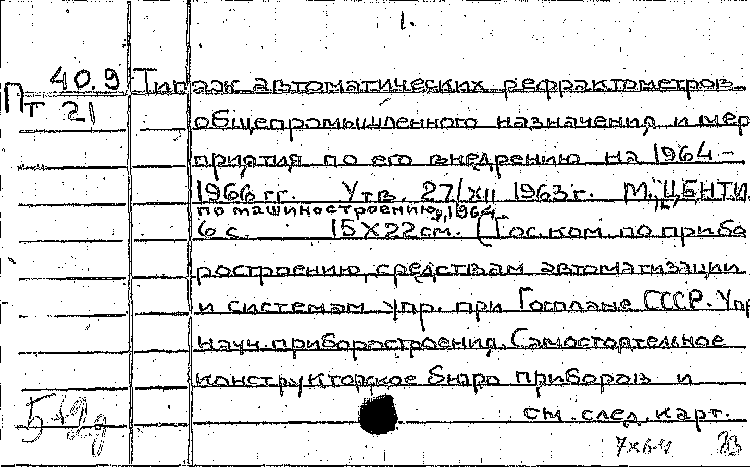 1.
40.9 Типаж автоматических рефрактометров
Пт 21 общепромышленного назначения и мер
приятия по его внедрению на 1964-
1966 гг. Утв. 27/XII 1963г. М., ЦБНТИ
по машиностроению, 1964.
6 с. 15х22см. (Гос. ком. по прибо
ростроению, средствам автоматизации
и системам упр. при Госплане СССР. Упр
науч. приборостроения. Самостоятельное
конструкторское бюро приборов и
см. след. карт.